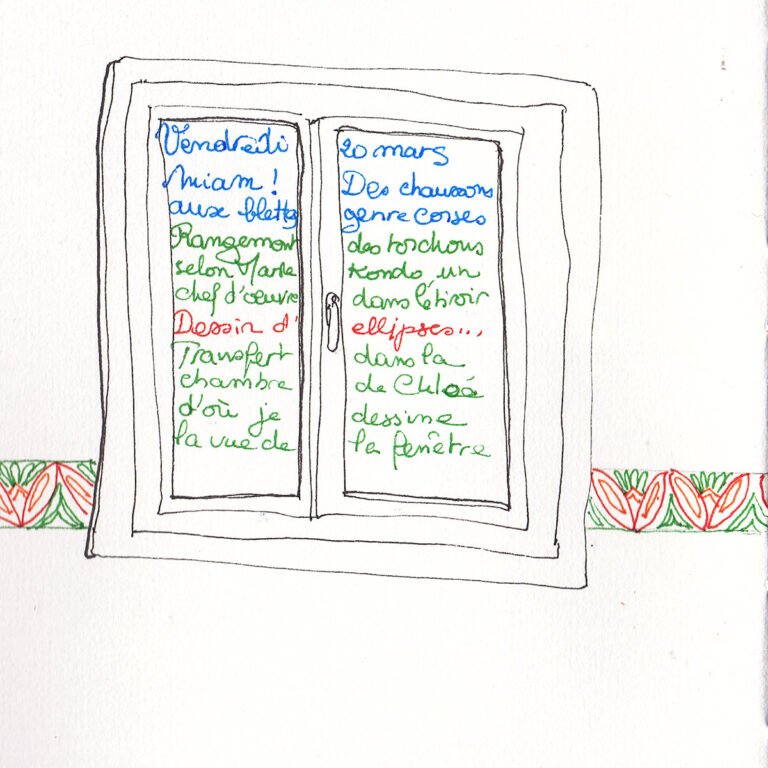 Vendredi 20 mars
Miam ! Des chaussons
aux blettes genre corses
Rangement des torchons
selon Marie Kondo un
chef d'œuvre dans l'tiroir
Dessin d' ellipses...
Transfert dans la
chambre de Chloé
d'où je dessine
la vue de la fenêtre